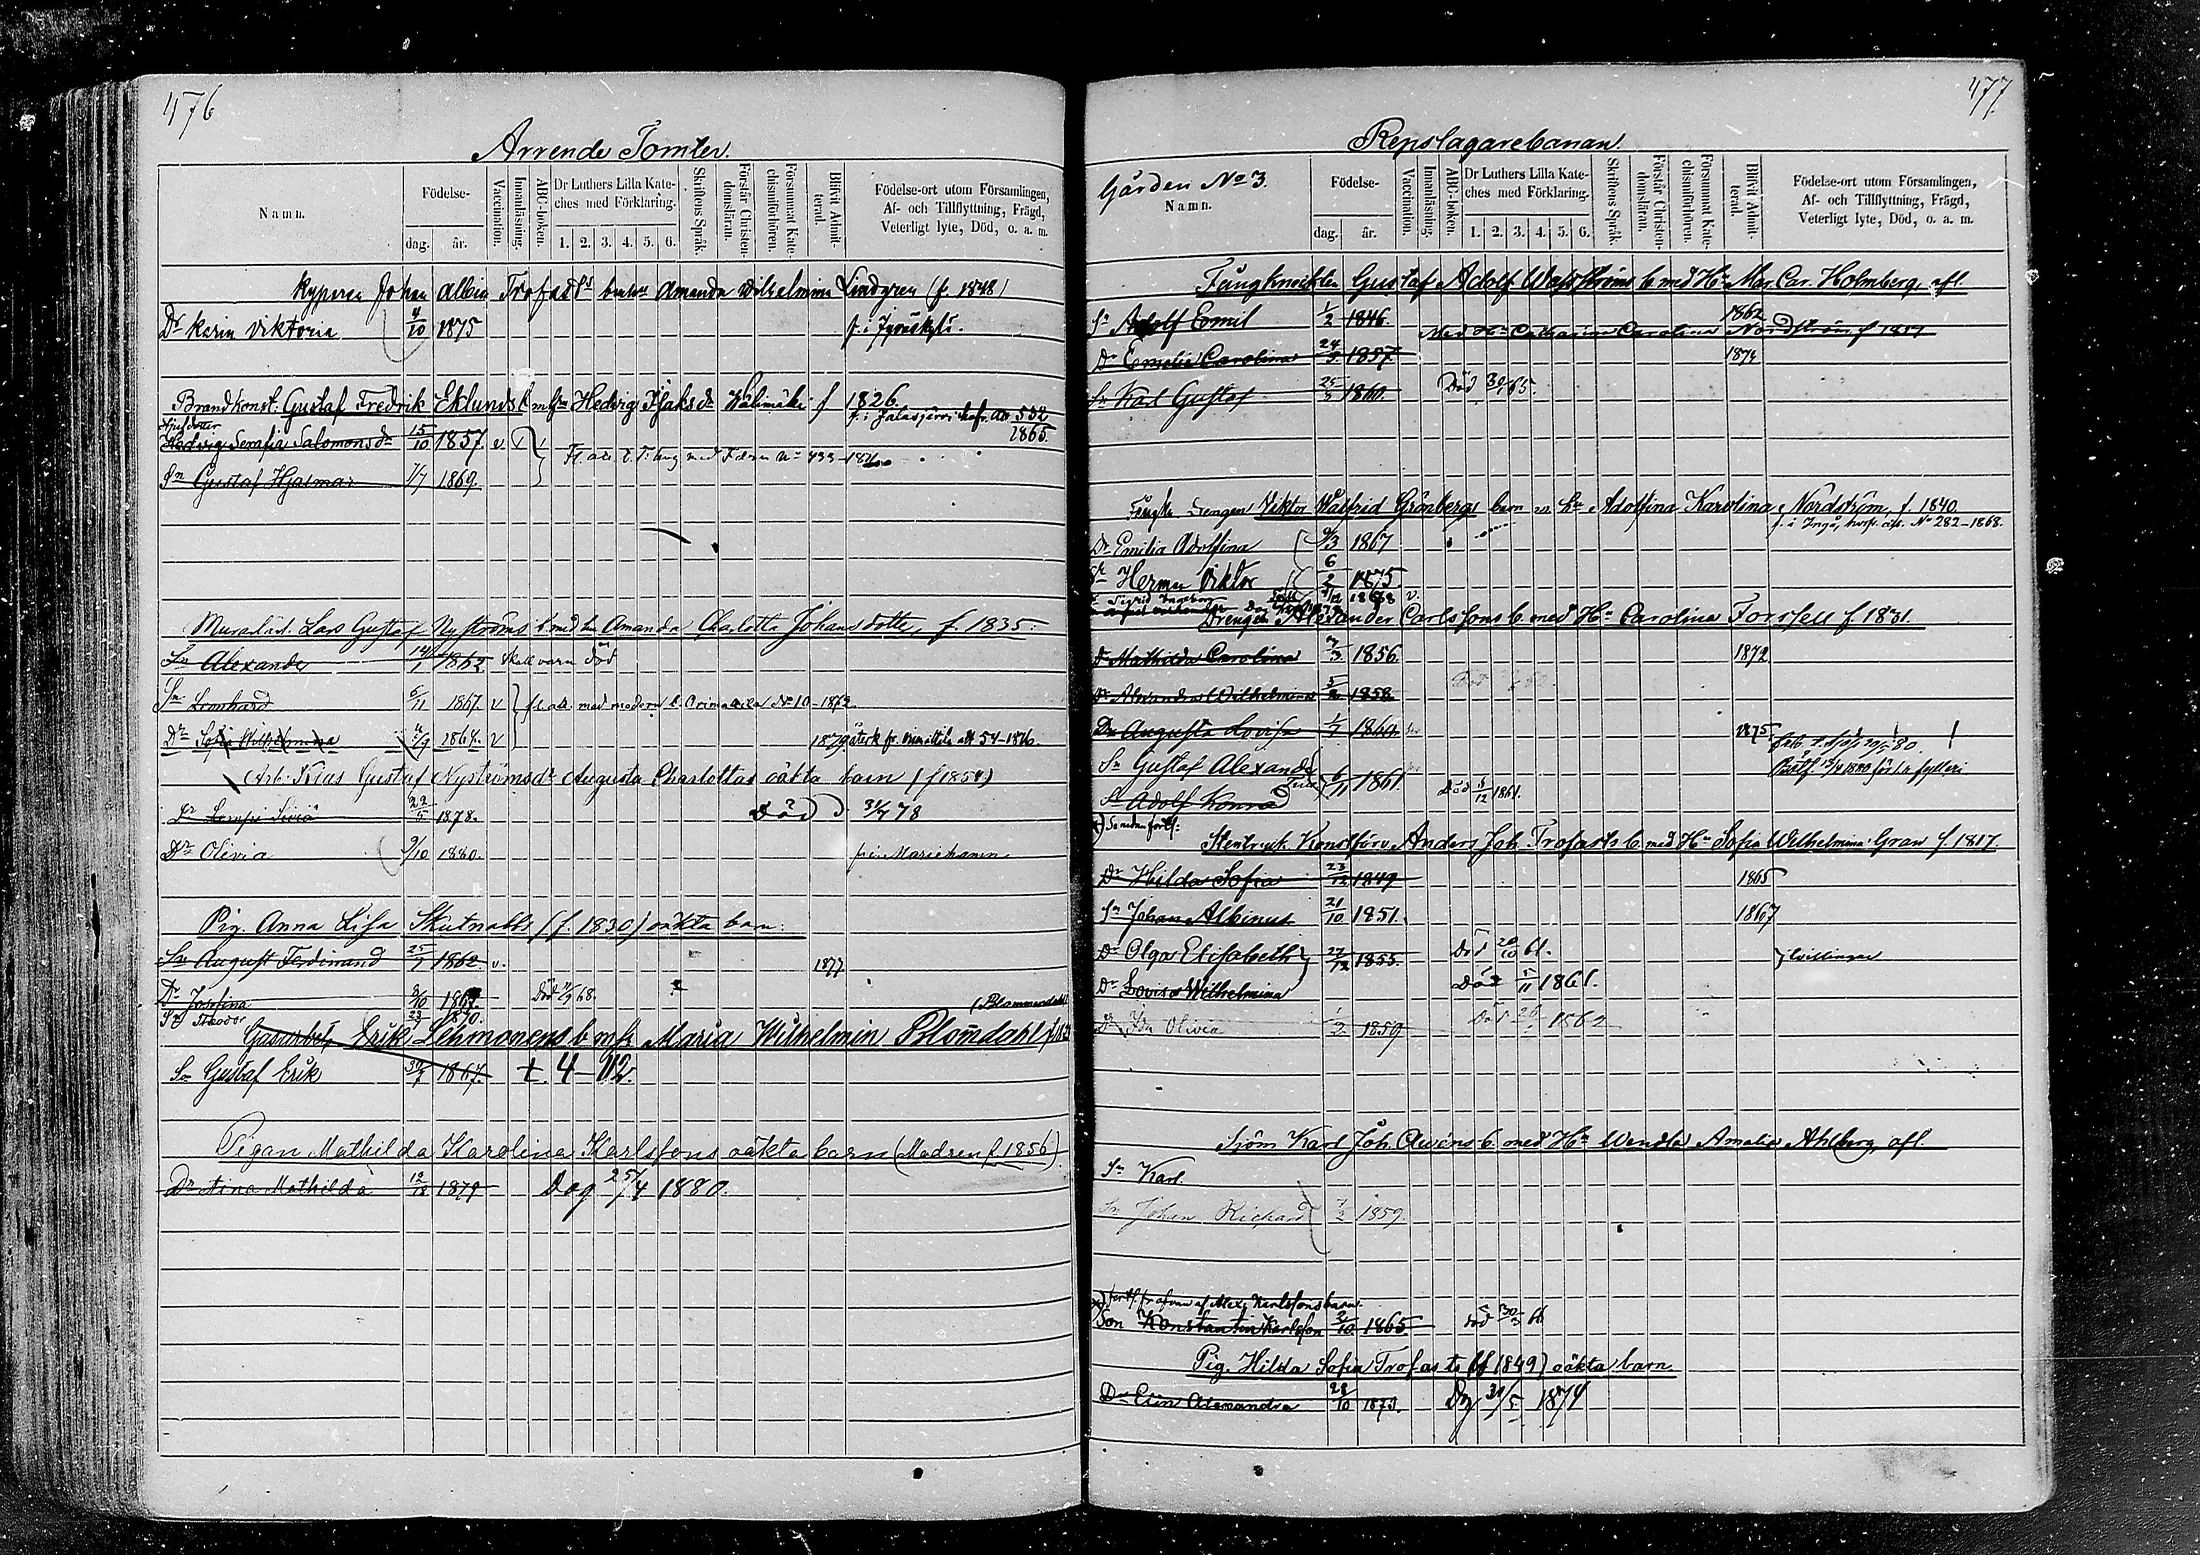 476
Arrende Tomter.
Namn.
Födelse-
dag.
år.
Vaccination.
Innanläsning.
ABC-boken.
Dr Luthers Lilla Kate-
ches med Förklaring.
1. 2. 3. 4. 5. 6.
Skriftens Språk.
Förstår Christen-
domsläran.
Försummat Kate-
chismiförhören.
Blifvit Admit-
terad.
Födelse-ort utom Församlingen,
Af- och Tillflyttning, Frägd,
Veterligt lyte, Död, o. a. m.
Kyparen Johan Albin Trofasts Amanda Wilhelmina Lindgren (f. 1848)
Dr Karin Viktoria 4/10 1875 f. i Jyväskylä.
Brandkonst. Gustaf Fredrik Eklunds b m hu Hedvig Isaksdr Wälimäki f 1826
f. i Jalasjärvi 532
1865.
Hedvig Serafia Salomonsdr 15/10 1857. v
Sn Gustaf Hjalmar 1/7 1869.
Lars Gustaf Nyströms b. med hu Amanda Charlotta Johansdotter, f. 1835.
Sn Alexander 14/1 1862 skall vara död
Sn Leonhard 6/11 1867. v med modern t. Orimattila No 10-1872.
Dr Sofia Wilhelmina v 1879 åtsk fr. Orimattila 54-1876.
Gustaf Nyströms dr Augusta Charlottas oäkta barn (f 1854)
Dr Siviä 22/5 1878. Död 31/7 78
Dr Olivia 9/10 1880. Mariehamn
Pig. Anna Lisa Skutnabbs (f. 1830) oäkta barn:
Sn August Ferdinand 25/7 1862. v. 1877
Dr Josefina 8/10 Död 68.
Sn Theodor 1870. (Blommendahl)
Gasarbet Erik Lehmonens b m h Maria Wilhelmin Blomdahl
Sn Gustaf Erik 30/7 1867. + 4-112.
Pigan Mathilda Karolina Karlssons oäkta barn (Modren f. 1856)
Dr Aina Mathilda 12/12 1879 Dog 25/4 1880.
477
Repslagarebanan.
Gården No 3.
Namn.
Födelse-
dag.
år.
Vaccination.
Innanläsning.
ABC-boken.
Dr Luthers Lilla Kate-
ches med Förklaring.
1. 2. 3. 4. 5. 6.
Skriftens Språk.
Förstår Christen-
domsläran.
Försummat Kate-
chismiförhören.
Blifvit Admit-
terad.
Födelse-ort utom Församlingen,
Af- och Tillflyttning, Frägd,
Veterligt lyte, Död, o. a. m.
Fångknekten Gustaf Adolf Wasströms b. med Hu Mar. Car. Holmberg, afl.
Sn Adolf Emil 1/2 1846. 1862
Med Hu Catharina Carolina Nordström f 1817
Dr Emelie Carolina 24/5 1857 1874
Sn Karl Gustaf 25/5 1860. Död 65.
Viktor Walfrid Grönbergs barn m. hu Adolfina Karolina Nordström, f. 1840.
f. i Ingå, No 282-1868.
Dr Emilia Adolfina 9/3 1867
Sn Herman Viktor 6/2 1875.
Sigrid Ingeborg 1878 v.
Drengen Alexander Carlssons b. med Hu Carolina Forssell f. 1831.
Dr Mathilda Carolina 7/3 1856. 1872
Dr Alexandra Wilhelmina 1858
Dr Augusta Lovisa 1/7 1860 1875.
Sn Gustaf Alexander 6/11 1861.
Sn Adolf Konrad Död 5/12 1861.
Anders Joh. Trofasts b. med Hu Sofia Wilhelmina Gran f. 1817.
Dr Hilda Sofia 23/12 1849 1865
Sn Johan Albinus 21/10 1851. 1867
Dr Olga Elisabeth 27/12 1855. Död 20/10 61. tvillingar
Dr Lovisa Wilhelmina Död 5/11 1861.
Dr Ida Olivia 1859 Död 1862
Sjöm Karl Joh. b. med Hu Wendla Amalia Ahlberg, afl.
Sn Karl
Sn Johan Richard 7/2 1859.
fortf. fr ofvan af Alex. Karlssons barn.
Son Konstantin Karlsson 2/10 1865. död 66
Pig. Hilda Sofia Trofasts (f 1849) oäkta barn.
Dr Elin Alexandra 28/10 1873. Dog 31/5 1874